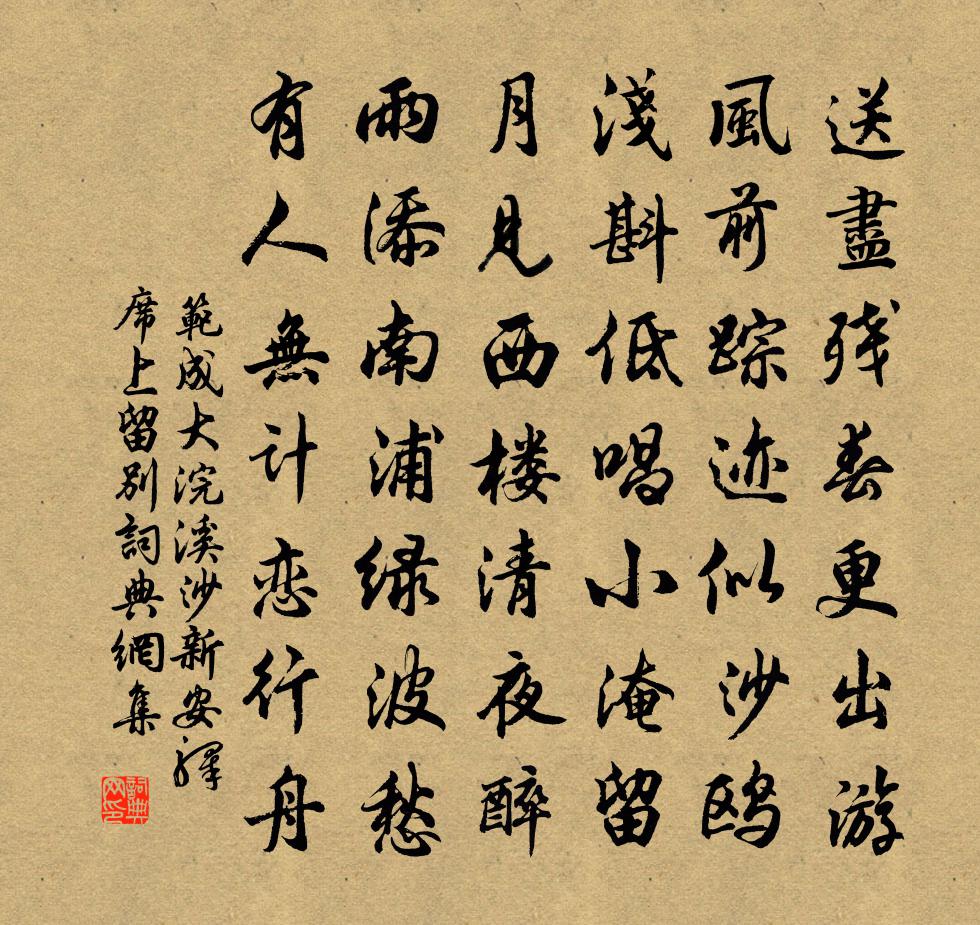 送盡残春更出游
風前踪迹似沙鸥
淺斟低唱小淹留
月見西楼清夜醉
雨添南浦绿波愁
有人無計恋行舟
範成大浣溪沙新安驛
席上留别詞典網集
詞典网印